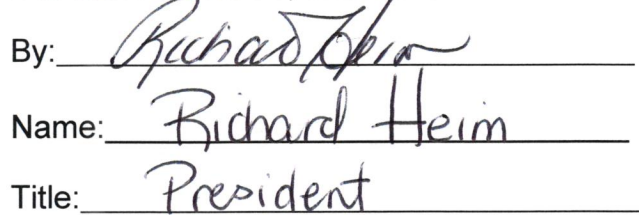 By: Richard Heim
Name: Richard Heim
Title: President